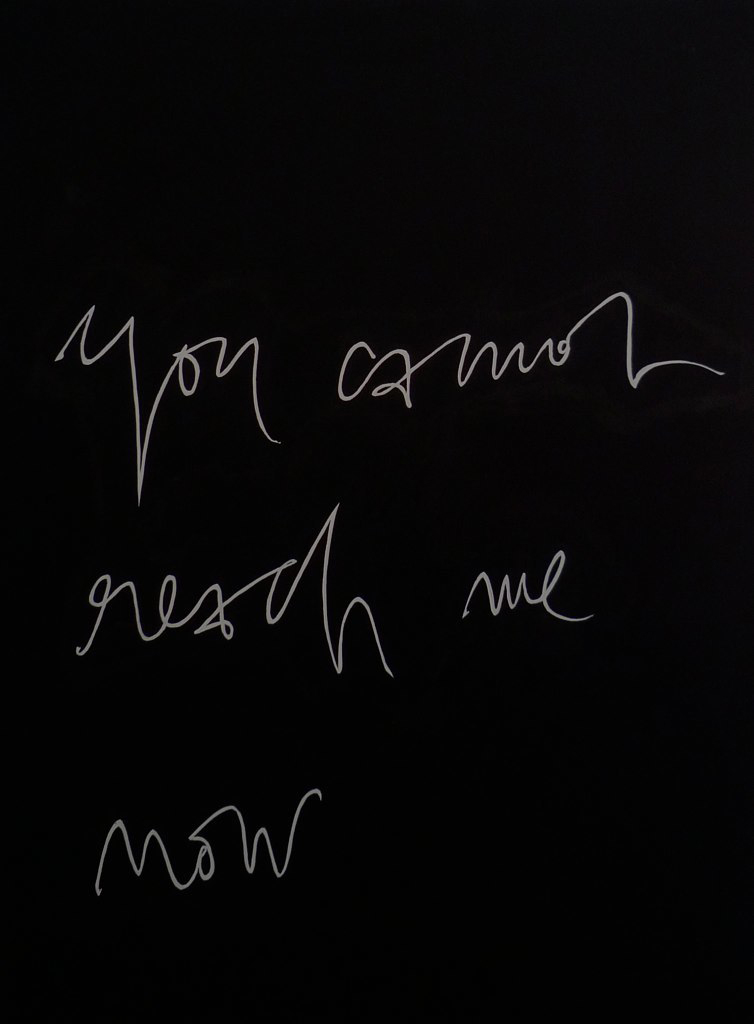 you cannot
reach me
now